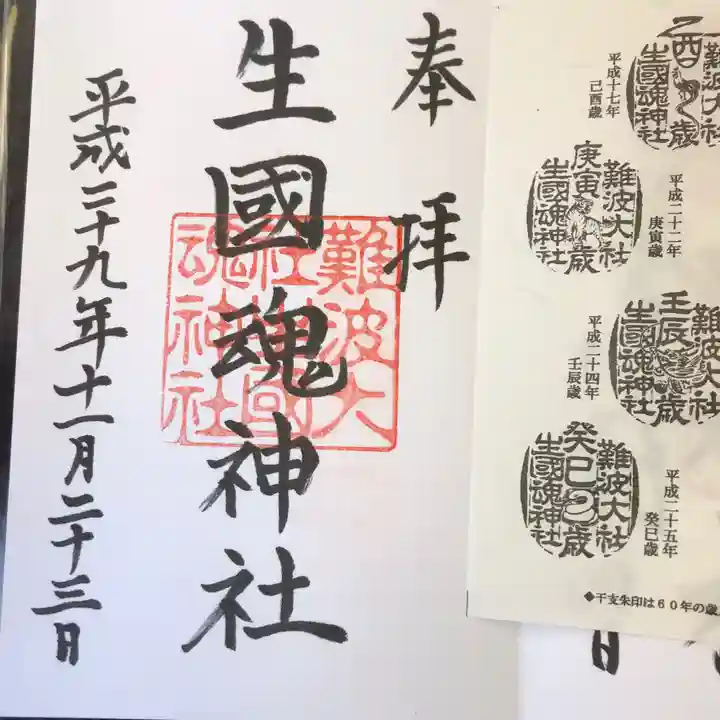 奉拝
生國魂神社
難波大社
生國魂神社
平成二十九年十一月二十三日
難波大社
乙酉歳
生國魂神社
平成十七年
己酉歳
難波大社
庚寅歳
生國魂神社
平成二十二年
庚寅歳
難波大社
壬辰歳
生國魂神社
平成二十四年
壬辰歳
難波大社
癸巳歳
生國魂神社
平成二十五年
癸巳歳
◆干支朱印は６０年の歳
日